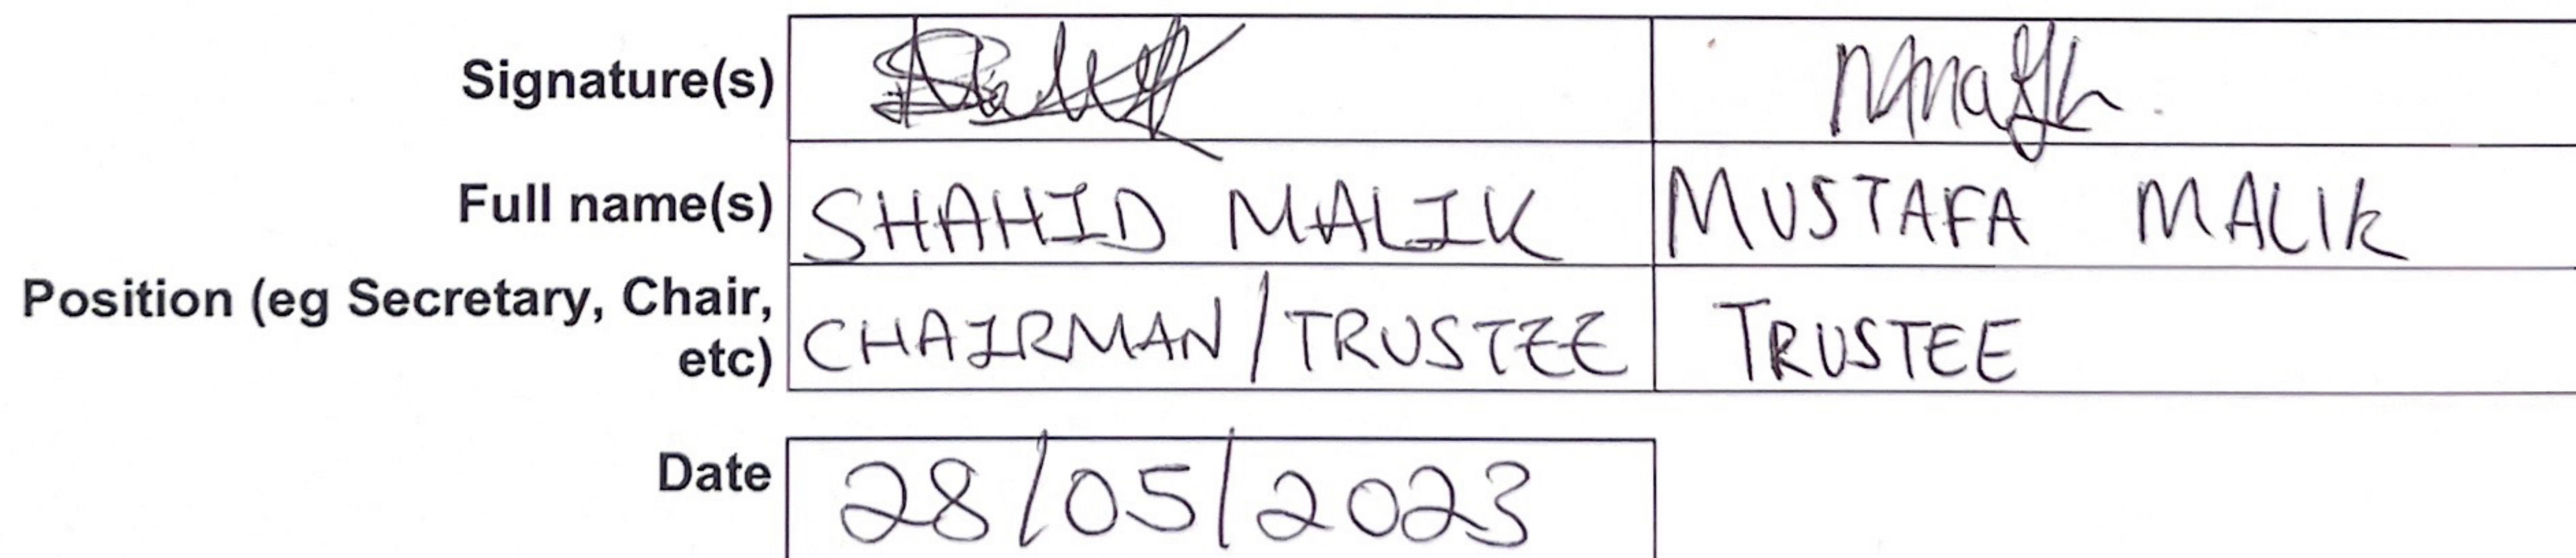 Signature(s)
Full name(s) SHAHID MALIK MUSTAFA MALIK
Position (eg Secretary, Chair,
etc) CHAIRMAN/TRUSTEE TRUSTEE
Date 28/05/2023